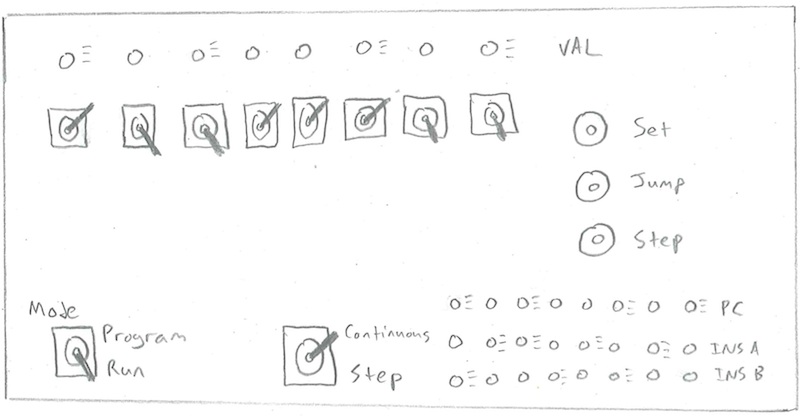 VAL
Set
Jump
Step
Mode
Program
Run
Continuous
Step
PC
INS A
INS B